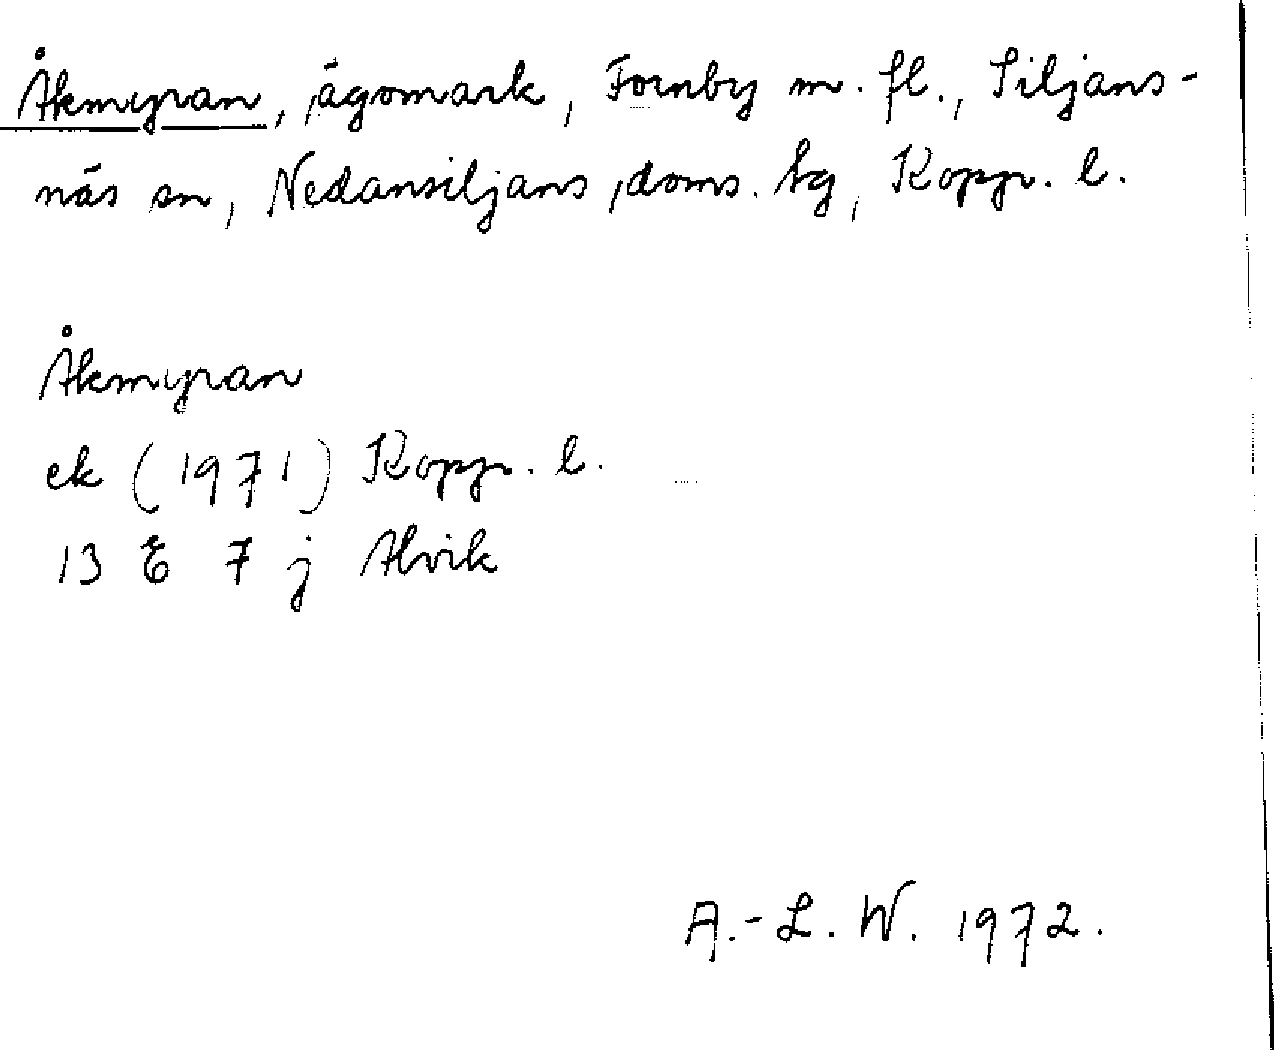 Åkmyran, ägomark, Fornby m. fl., Siljans-
näs sn, Nedansiljans doms. tg, Kopp. l.
Åkmyran
ek (1971) Kopp. l.
13 E 7 j Alvik
A.-L. W. 1972.